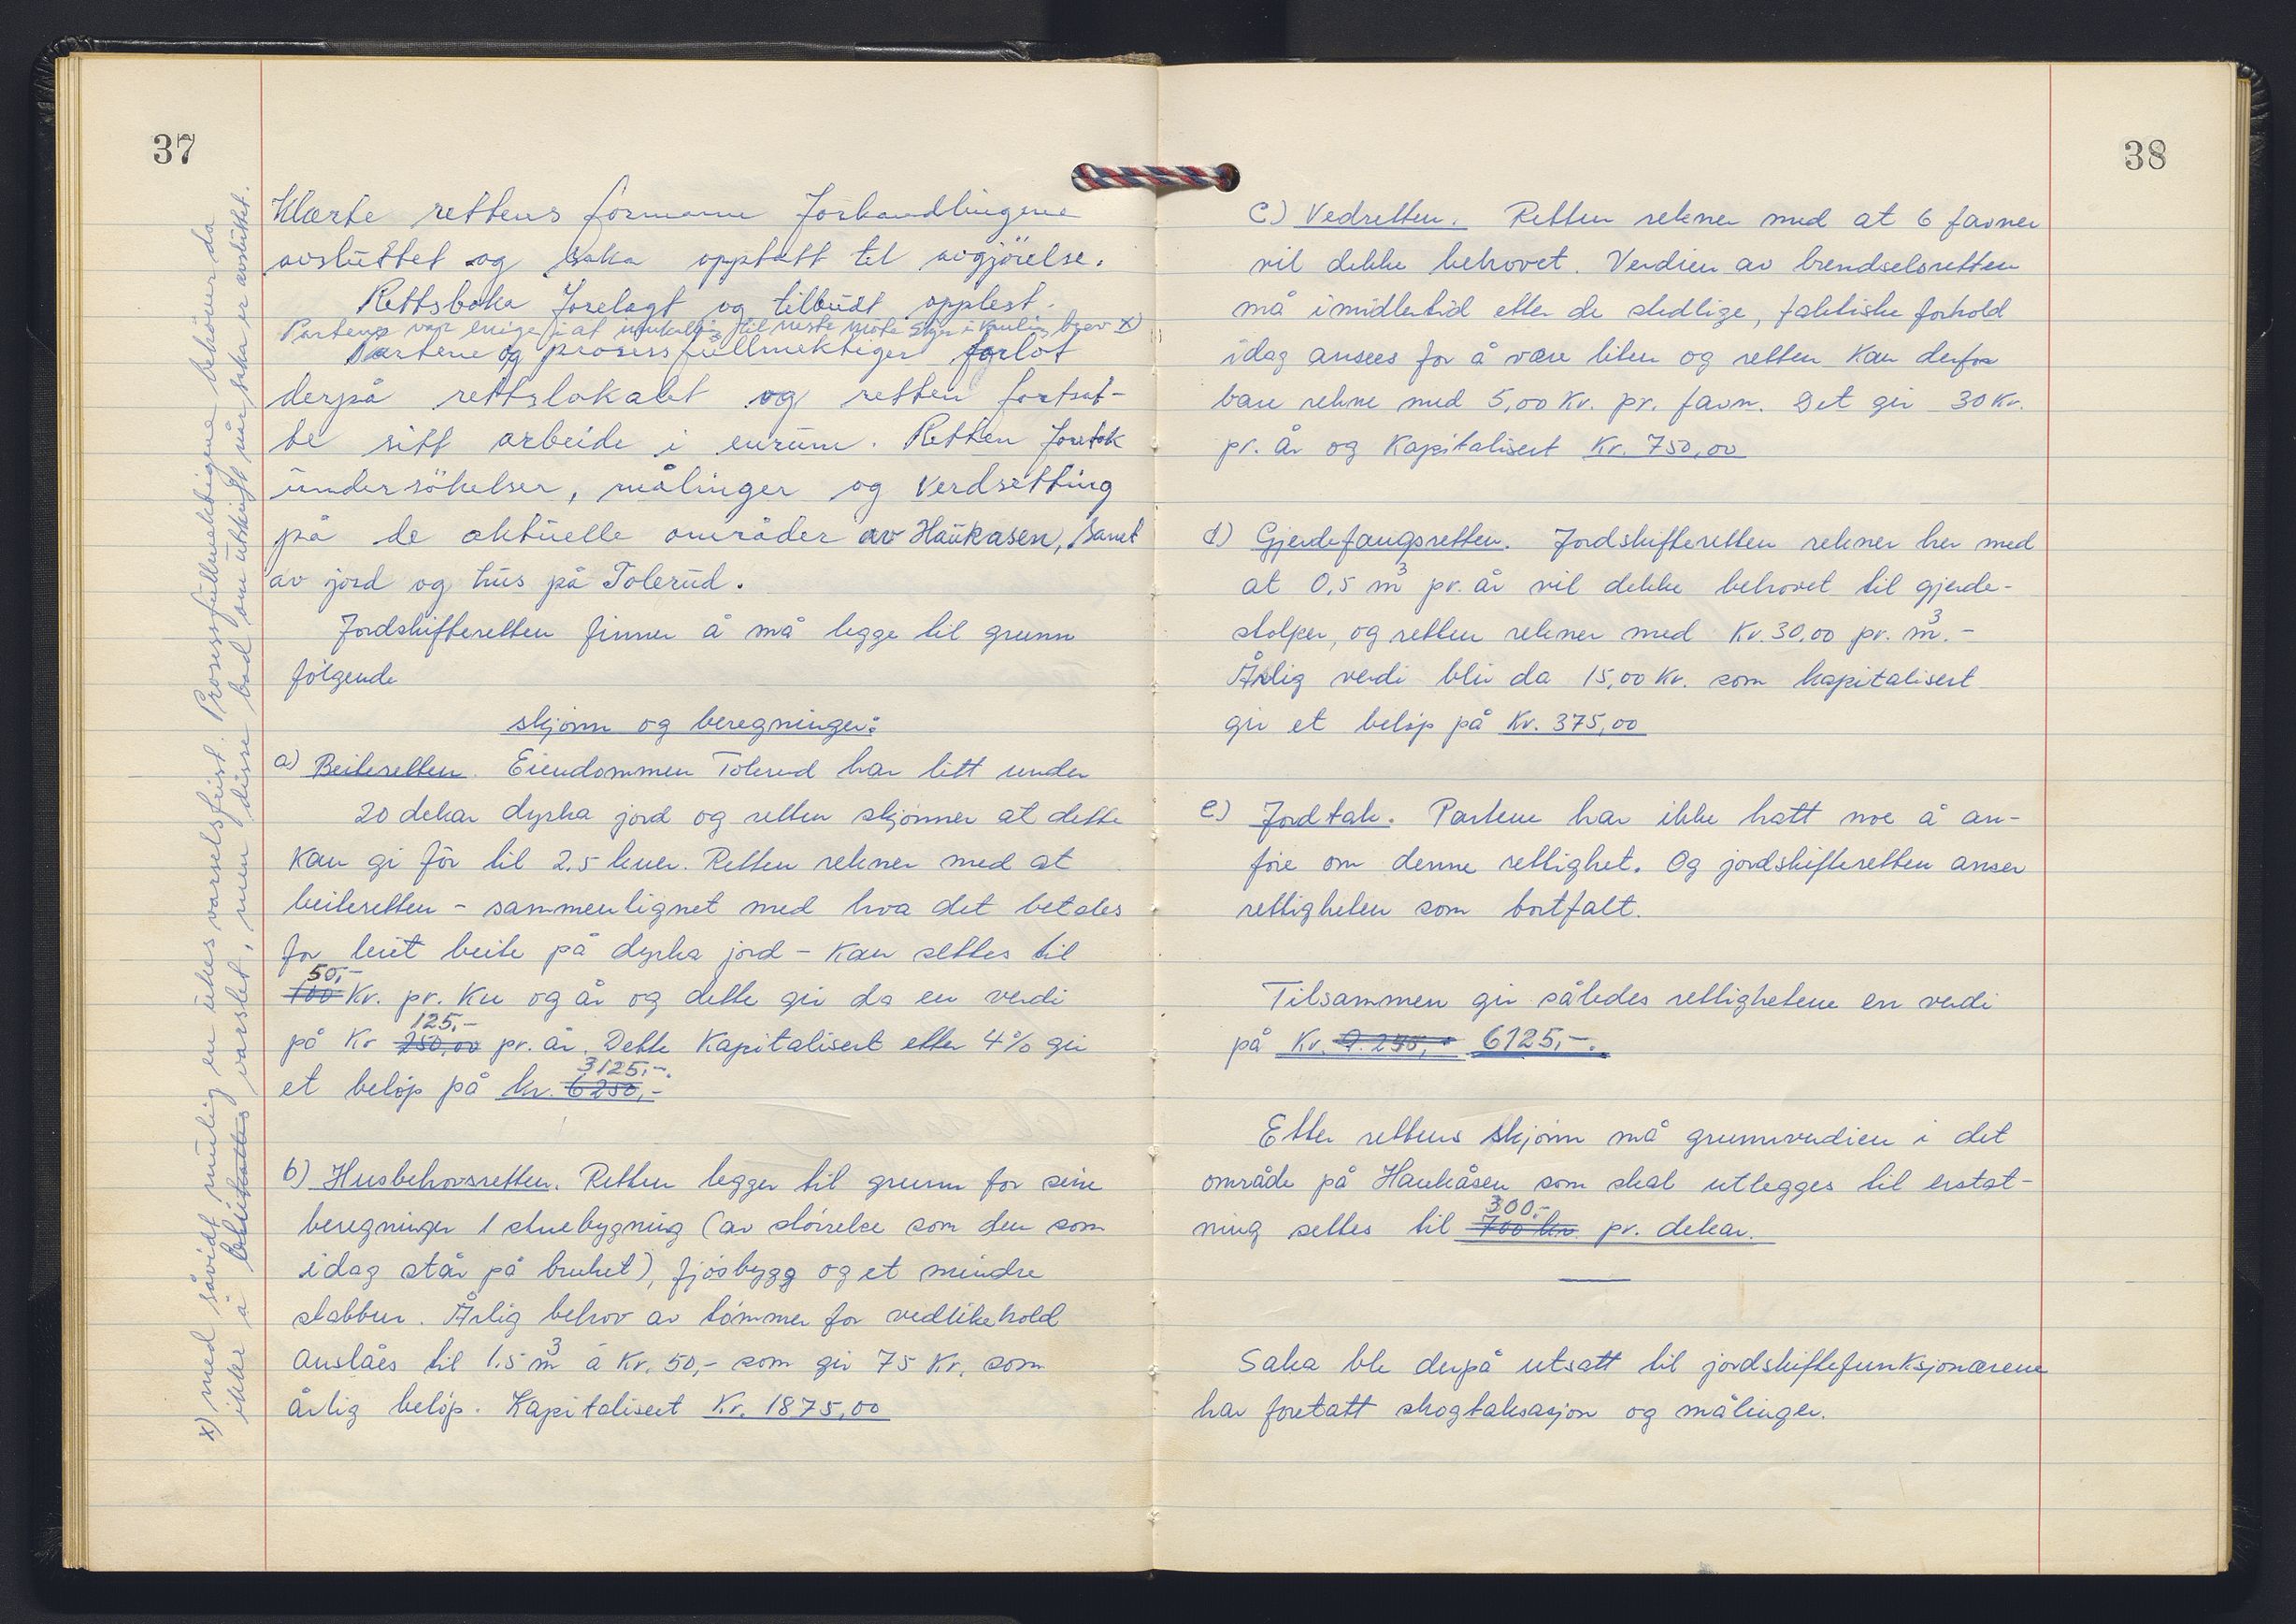 37
klærte rettens formann forhandlingene
avsluttet og saka opptatt til avgjörelse.
Rettsboka forelagt og tilbudt opplest.
Partene var enige i at innkalling til neste möte skjer i vanlig brev x)
Partene og prosessfullmektiger forlot
derpå rettslokalet og retten fortsat-
te sitt arbeide i enrum. Retten foretok
undersökelser, målinger og verdsetting
på de aktuelle områder av Haukåsen, samt
av jord og hus på Tolerud.
Jordskifteretten finner å må legge til grunn
følgende
skjønn og beregninger:
a) Beiteretten. Eiendommen Tolerud har litt under
20 dekar dyrka jord og retten skjønner at dette
kan gi fôr til 2,5 kuer. Retten rekner med at
beiteretten - sammenlignet med hva det betales
for leiet beite på dyrka jord - kan settes til
50,-
100 Kr. pr. ku og år og dette gir da en verdi
125,-
på Kr 250,00 pr. år. Dette kapitalisert etter 4% gir
3125,-.
et beløp på kr. 6250,-
b) Husbehovsretten. Retten legger til grunn for sine
beregninger 1 stuebygning (av størrelse som den som
idag står på bruket), fjøsbygg og et mindre
stabbur. Årlig behov av tømmer for vedlikehold
anslåes til 1.5 m³ á Kr. 50,- som gir 75 Kr. som
årlig beløp. Kapitalisert Kr. 1875,00
x) med såvidt mulig en ukes varselsfrist. Prosessfullmektigene behöver da
ikke å varslet, men disse bad om utskrift når saka er avsluttet.
38
c) Vedretten. Retten rekner med at 6 favner
vil dekke behovet. Verdien av brendselsretten
må imidlertid etter de stedlige, faktiske forhold
idag ansees for å være liten og retten kan derfor
bare rekne med 5,00 Kr. pr. favn. Det gir 30 Kr.
pr. år og kapitalisert Kr. 750,00
d) Gjerdefangsretten. Jordskifteretten rekner her med
at 0,5 m³ pr. år vil dekke behovet til gjerde-
stolper, og retten rekner med Kr. 30,00 pr. m³.-
Årlig verdi blir da 15,00 Kr. som kapitalisert
gir et beløp på Kr. 375,00
e) Jordtak. Partene har ikke hatt noe å an-
føre om denne rettighet. Og jordskifteretten anser
rettigheten som bortfalt.
Tilsammen gir således rettighetene en verdi
på Kr. 6125,-.
Etter rettens skjønn må grunnverdien i det
område på Haukåsen som skal utlegges til erstat-
300.-
ning settes til 700 kr. pr. dekar.
Saka ble derpå utsatt til jordskiftefunksjonærene
har foretatt skogtaksasjon og målinger.